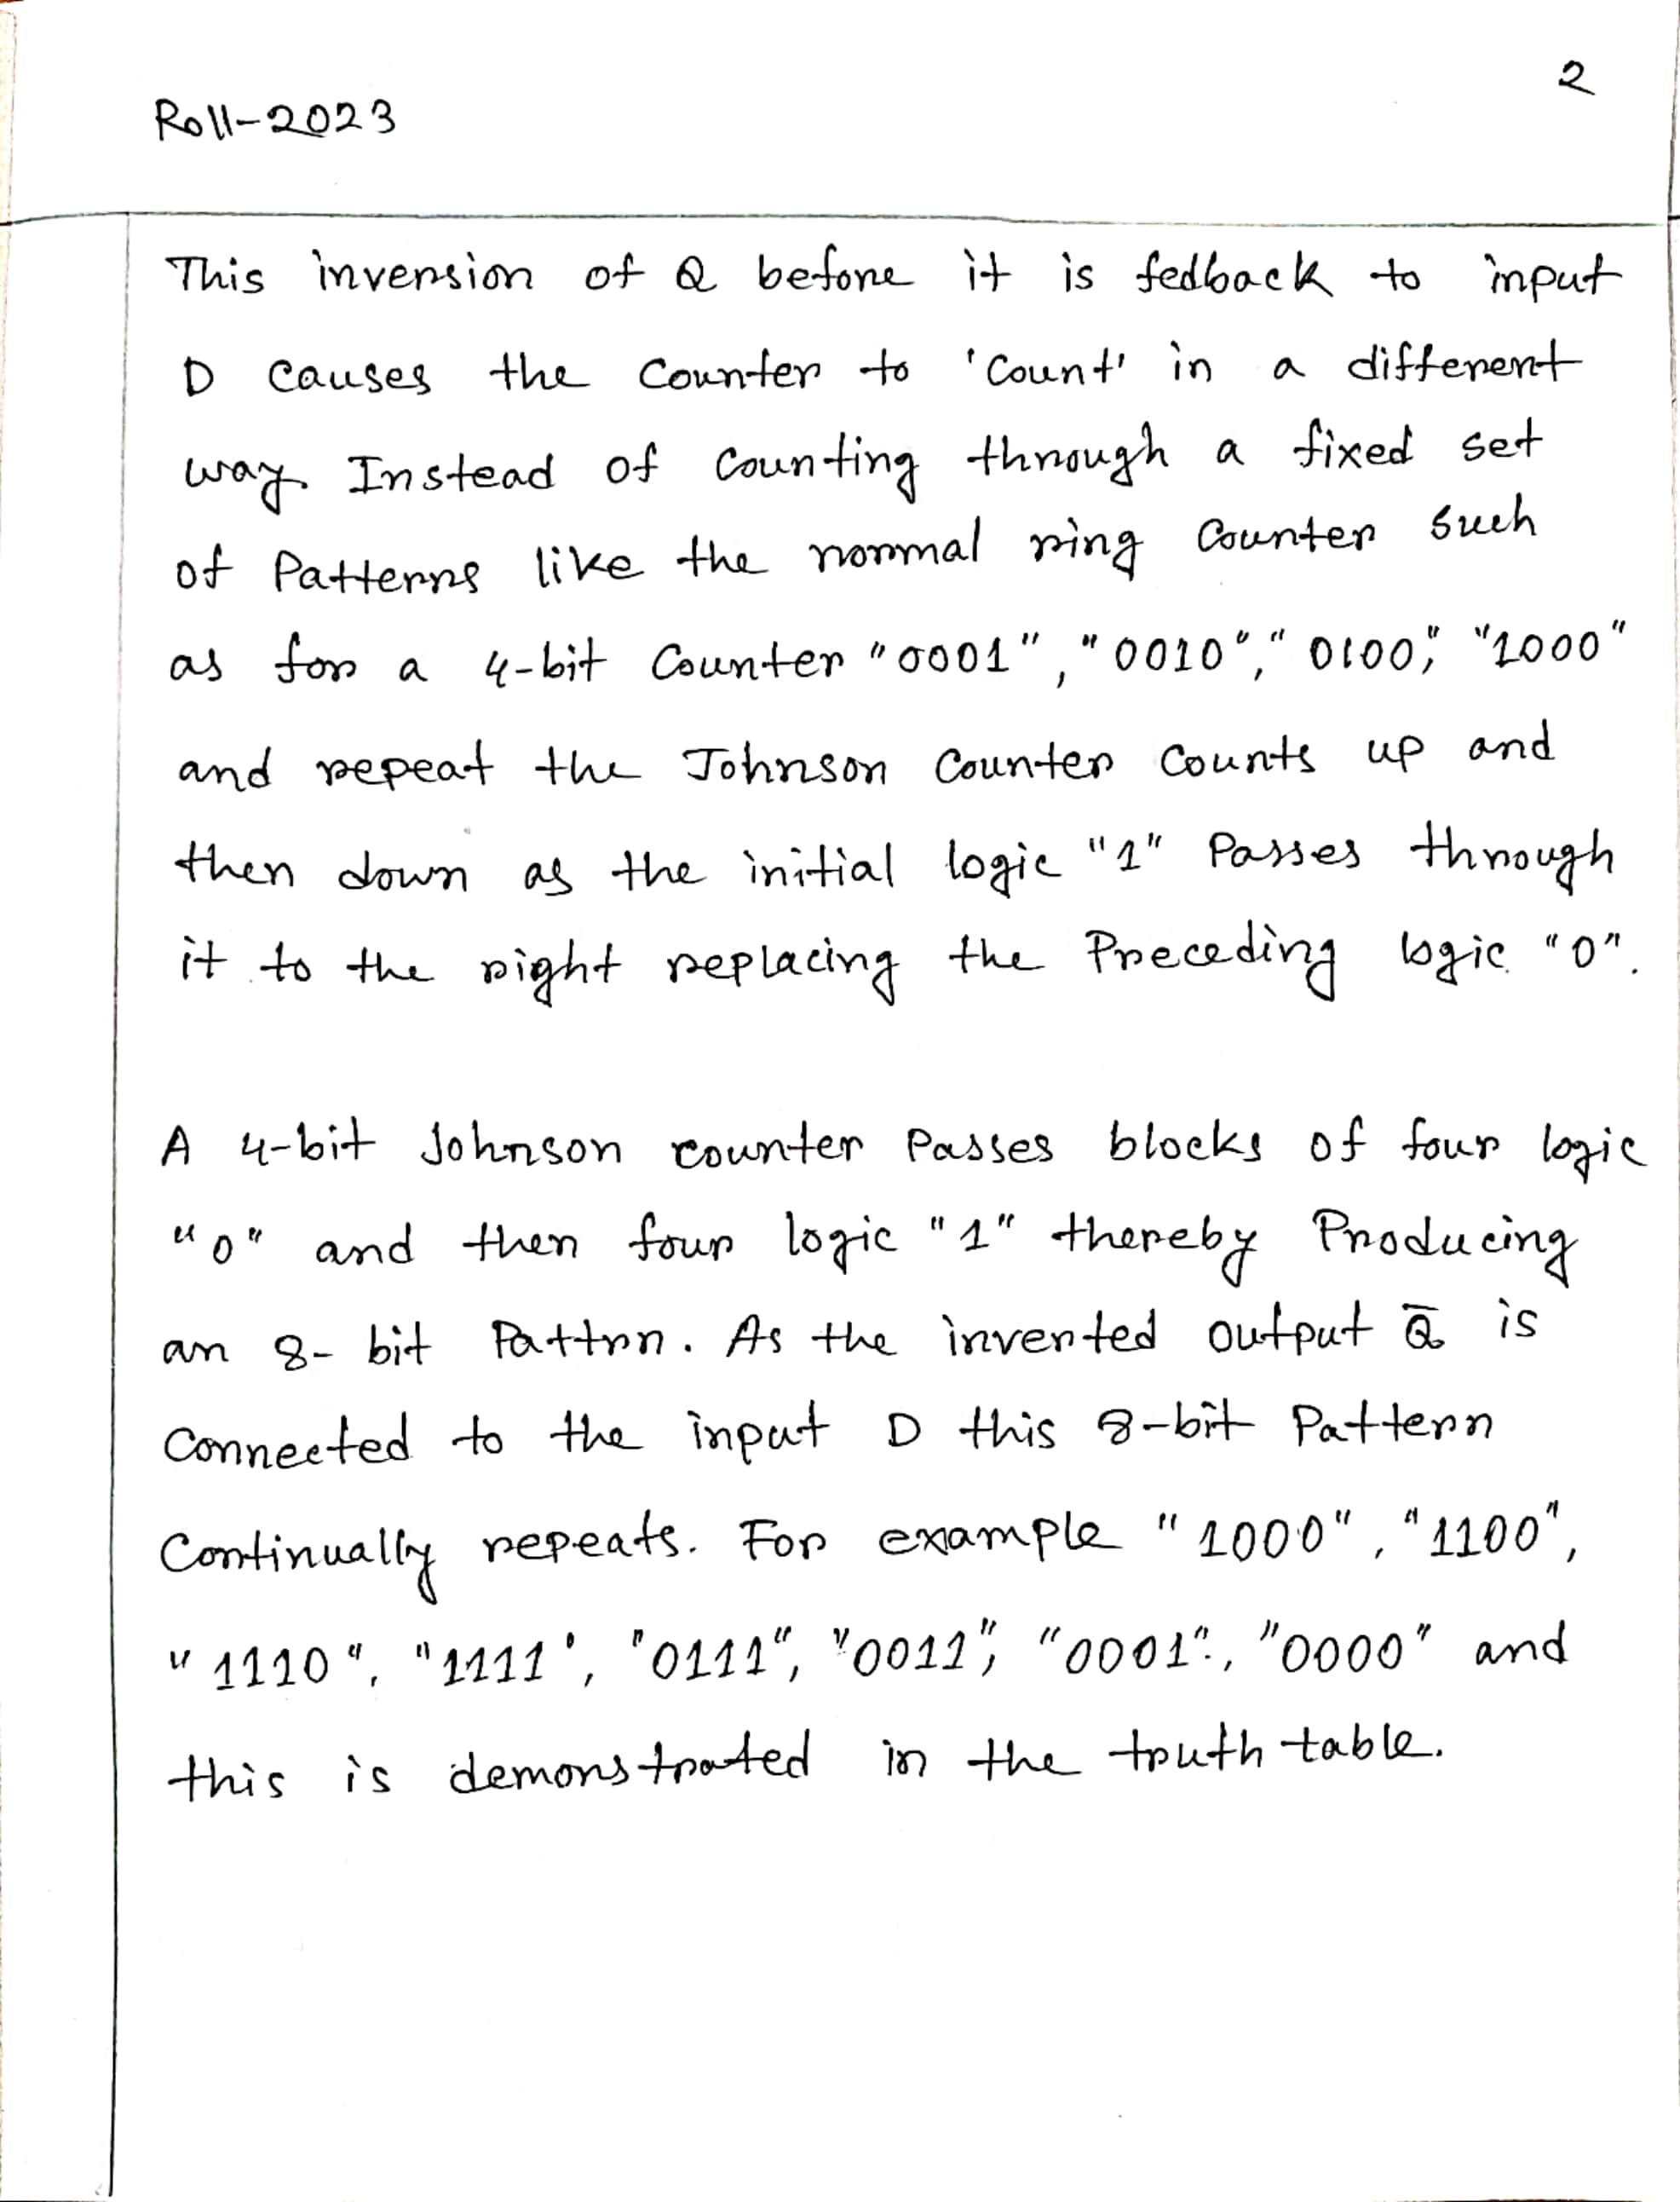 2
Roll-2023
This inversion of Q before it is fedback to input
D causes the Counter to 'Count' in a different
way. Instead of Counting through a fixed set
of Patterns like the normal ring Counter such
as for a 4-bit Counter "0001", "0010", "0100", "1000"
and repeat the Johnson Counter Counts up and
then down as the initial logic "1" Passes through
it to the right replacing the Preceding logic "0".
A 4-bit Johnson counter Passes blocks of four logic
"0" and then four logic "1" thereby Producing
an 8-bit Pattrn. As the inverted output Q̅ is
Connected to the input D this 8-bit Pattern
Continually repeats. For example "1000", "1100",
"1110", "1111", "0111", "0011", "0001", "0000" and
this is demonstrated in the truth table.